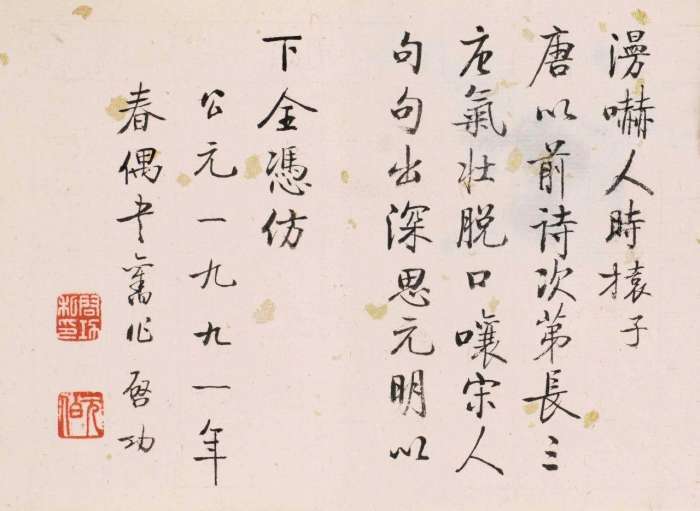 漫嚇人時子
唐以前诗次第長三
唐氣壮脱口嚷宋人
句句出深思元明以
下全憑仿
公元一九九一年
春偶书舊作啓功
啓功私印
元伯